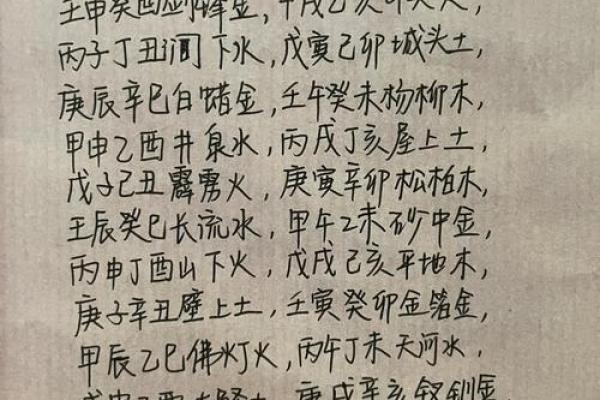 壬申癸酉剑锋金,甲戌乙亥山头火,
丙子丁丑涧下水,戊寅己卯城头土,
庚辰辛巳白蜡金,壬午癸未杨柳木,
甲申乙酉井泉水,丙戌丁亥屋上土,
戊子己丑霹雳火,庚寅辛卯松柏木,
壬辰癸巳长流水,甲午乙未砂中金,
丙申丁酉山下火,戊戌己亥平地木,
庚子辛丑壁上土,壬寅癸卯金箔金,
甲辰乙巳佛灯火,丙午丁未天河水,
庚戌辛亥钗钏金,